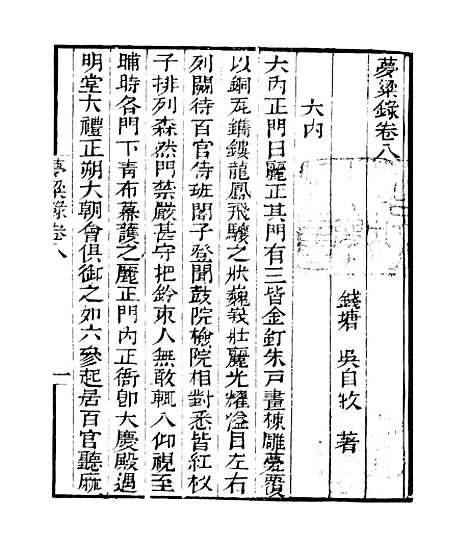 夢粱錄卷八
錢塘 吳自牧 著
大内
大内正門曰麗正其門有三皆金釘朱戸畫棟雕甍覆
以銅瓦鐫鏤龍鳳飛驤之狀巍峩壯麗光耀溢目左右
列闕待百官侍班閤子登聞鼓院檢院相對悉皆紅杈
子排列森然門禁嚴甚守把鈐束人無敢輒入仰視至
晡時各門下青布幕護之麗正門内正衙卽大慶殿遇
明堂大禮正朔大朝會俱御之如六參起居百官聽麻
夢粱錄卷八
一